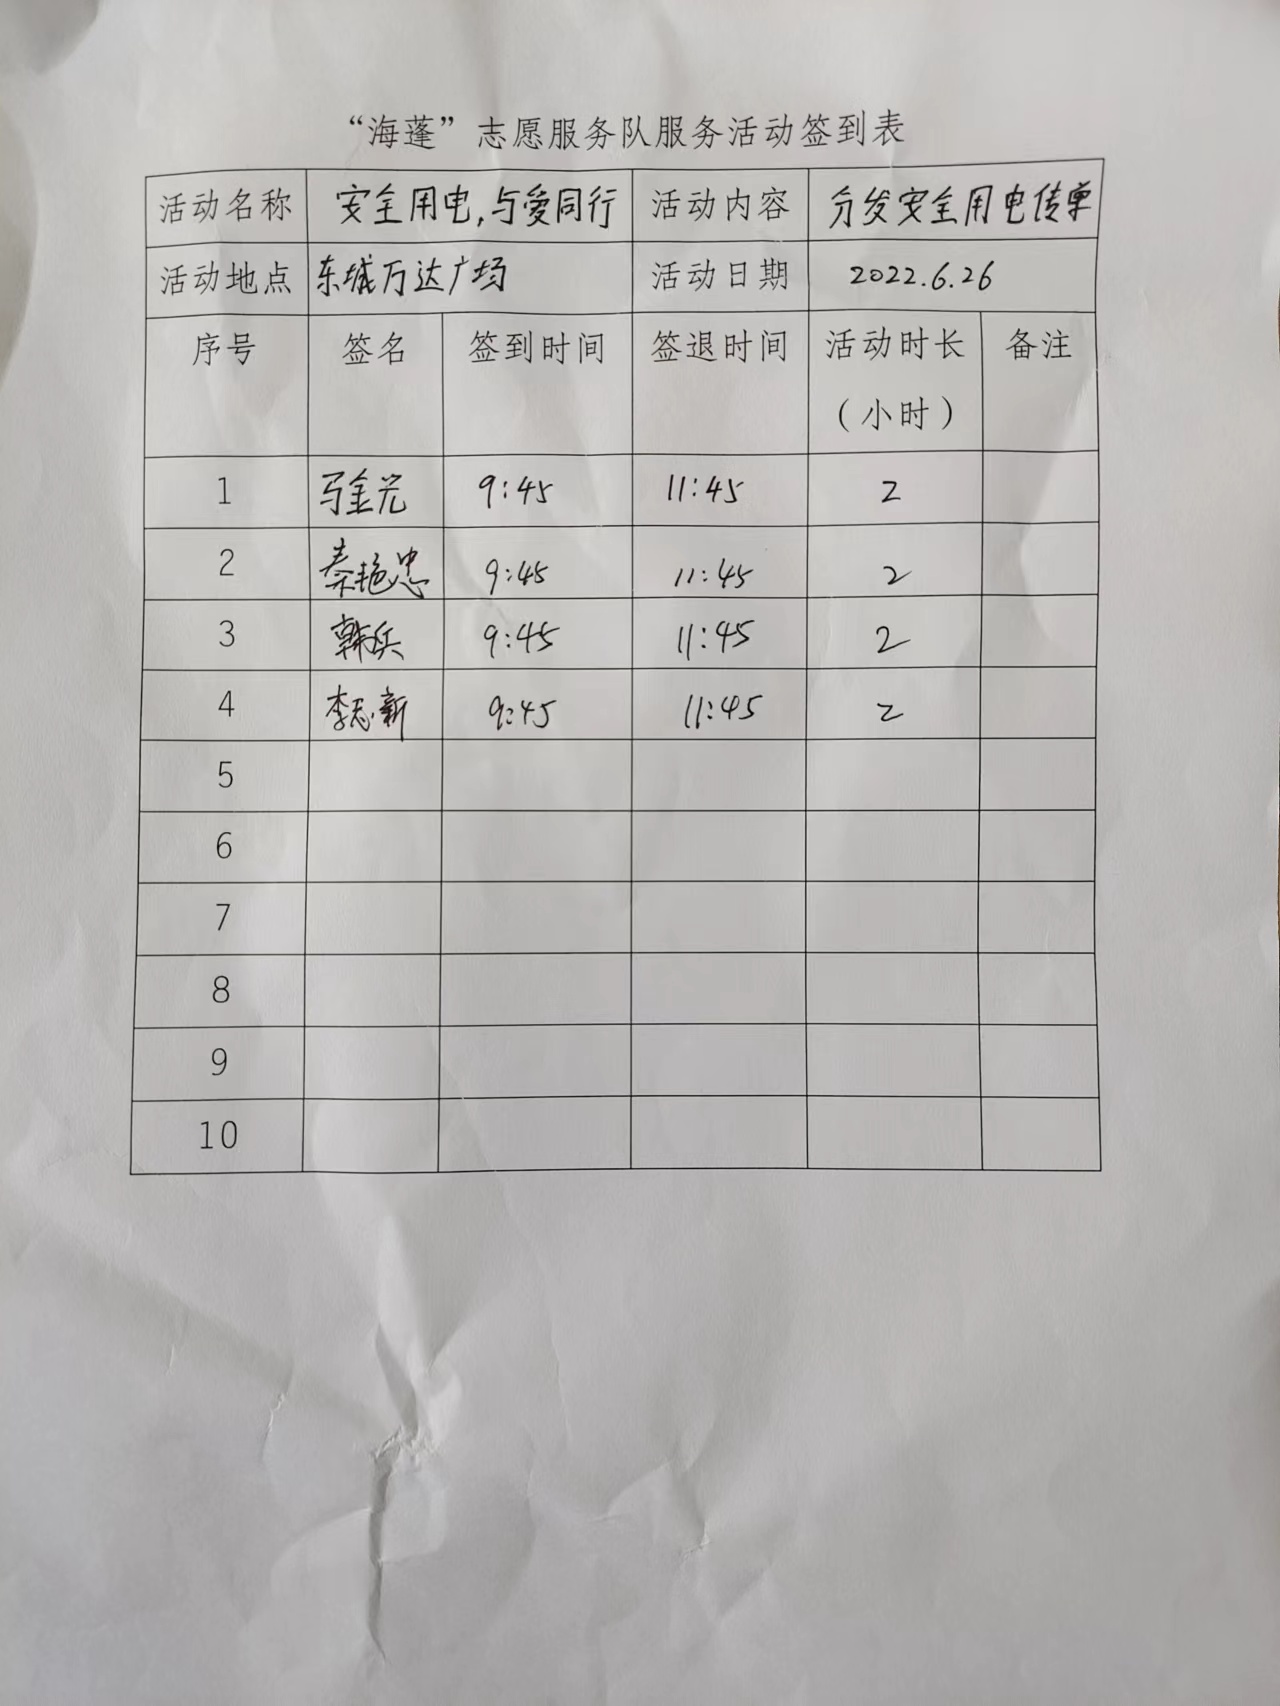 “海蓬”志愿服务队服务活动签到表
活动名称 安全用电,与爱同行 活动内容 分发安全用电传单
活动地点 东城万达广场 活动日期 2022.6.26
序号 签名 签到时间 签退时间 活动时长 备注
（小时）
1 马金光 9:45 11:45 2
2 秦艳忠 9:45 11:45 2
3 韩兵 9:45 11:45 2
4 李志新 9:45 11:45 2
5
6
7
8
9
10